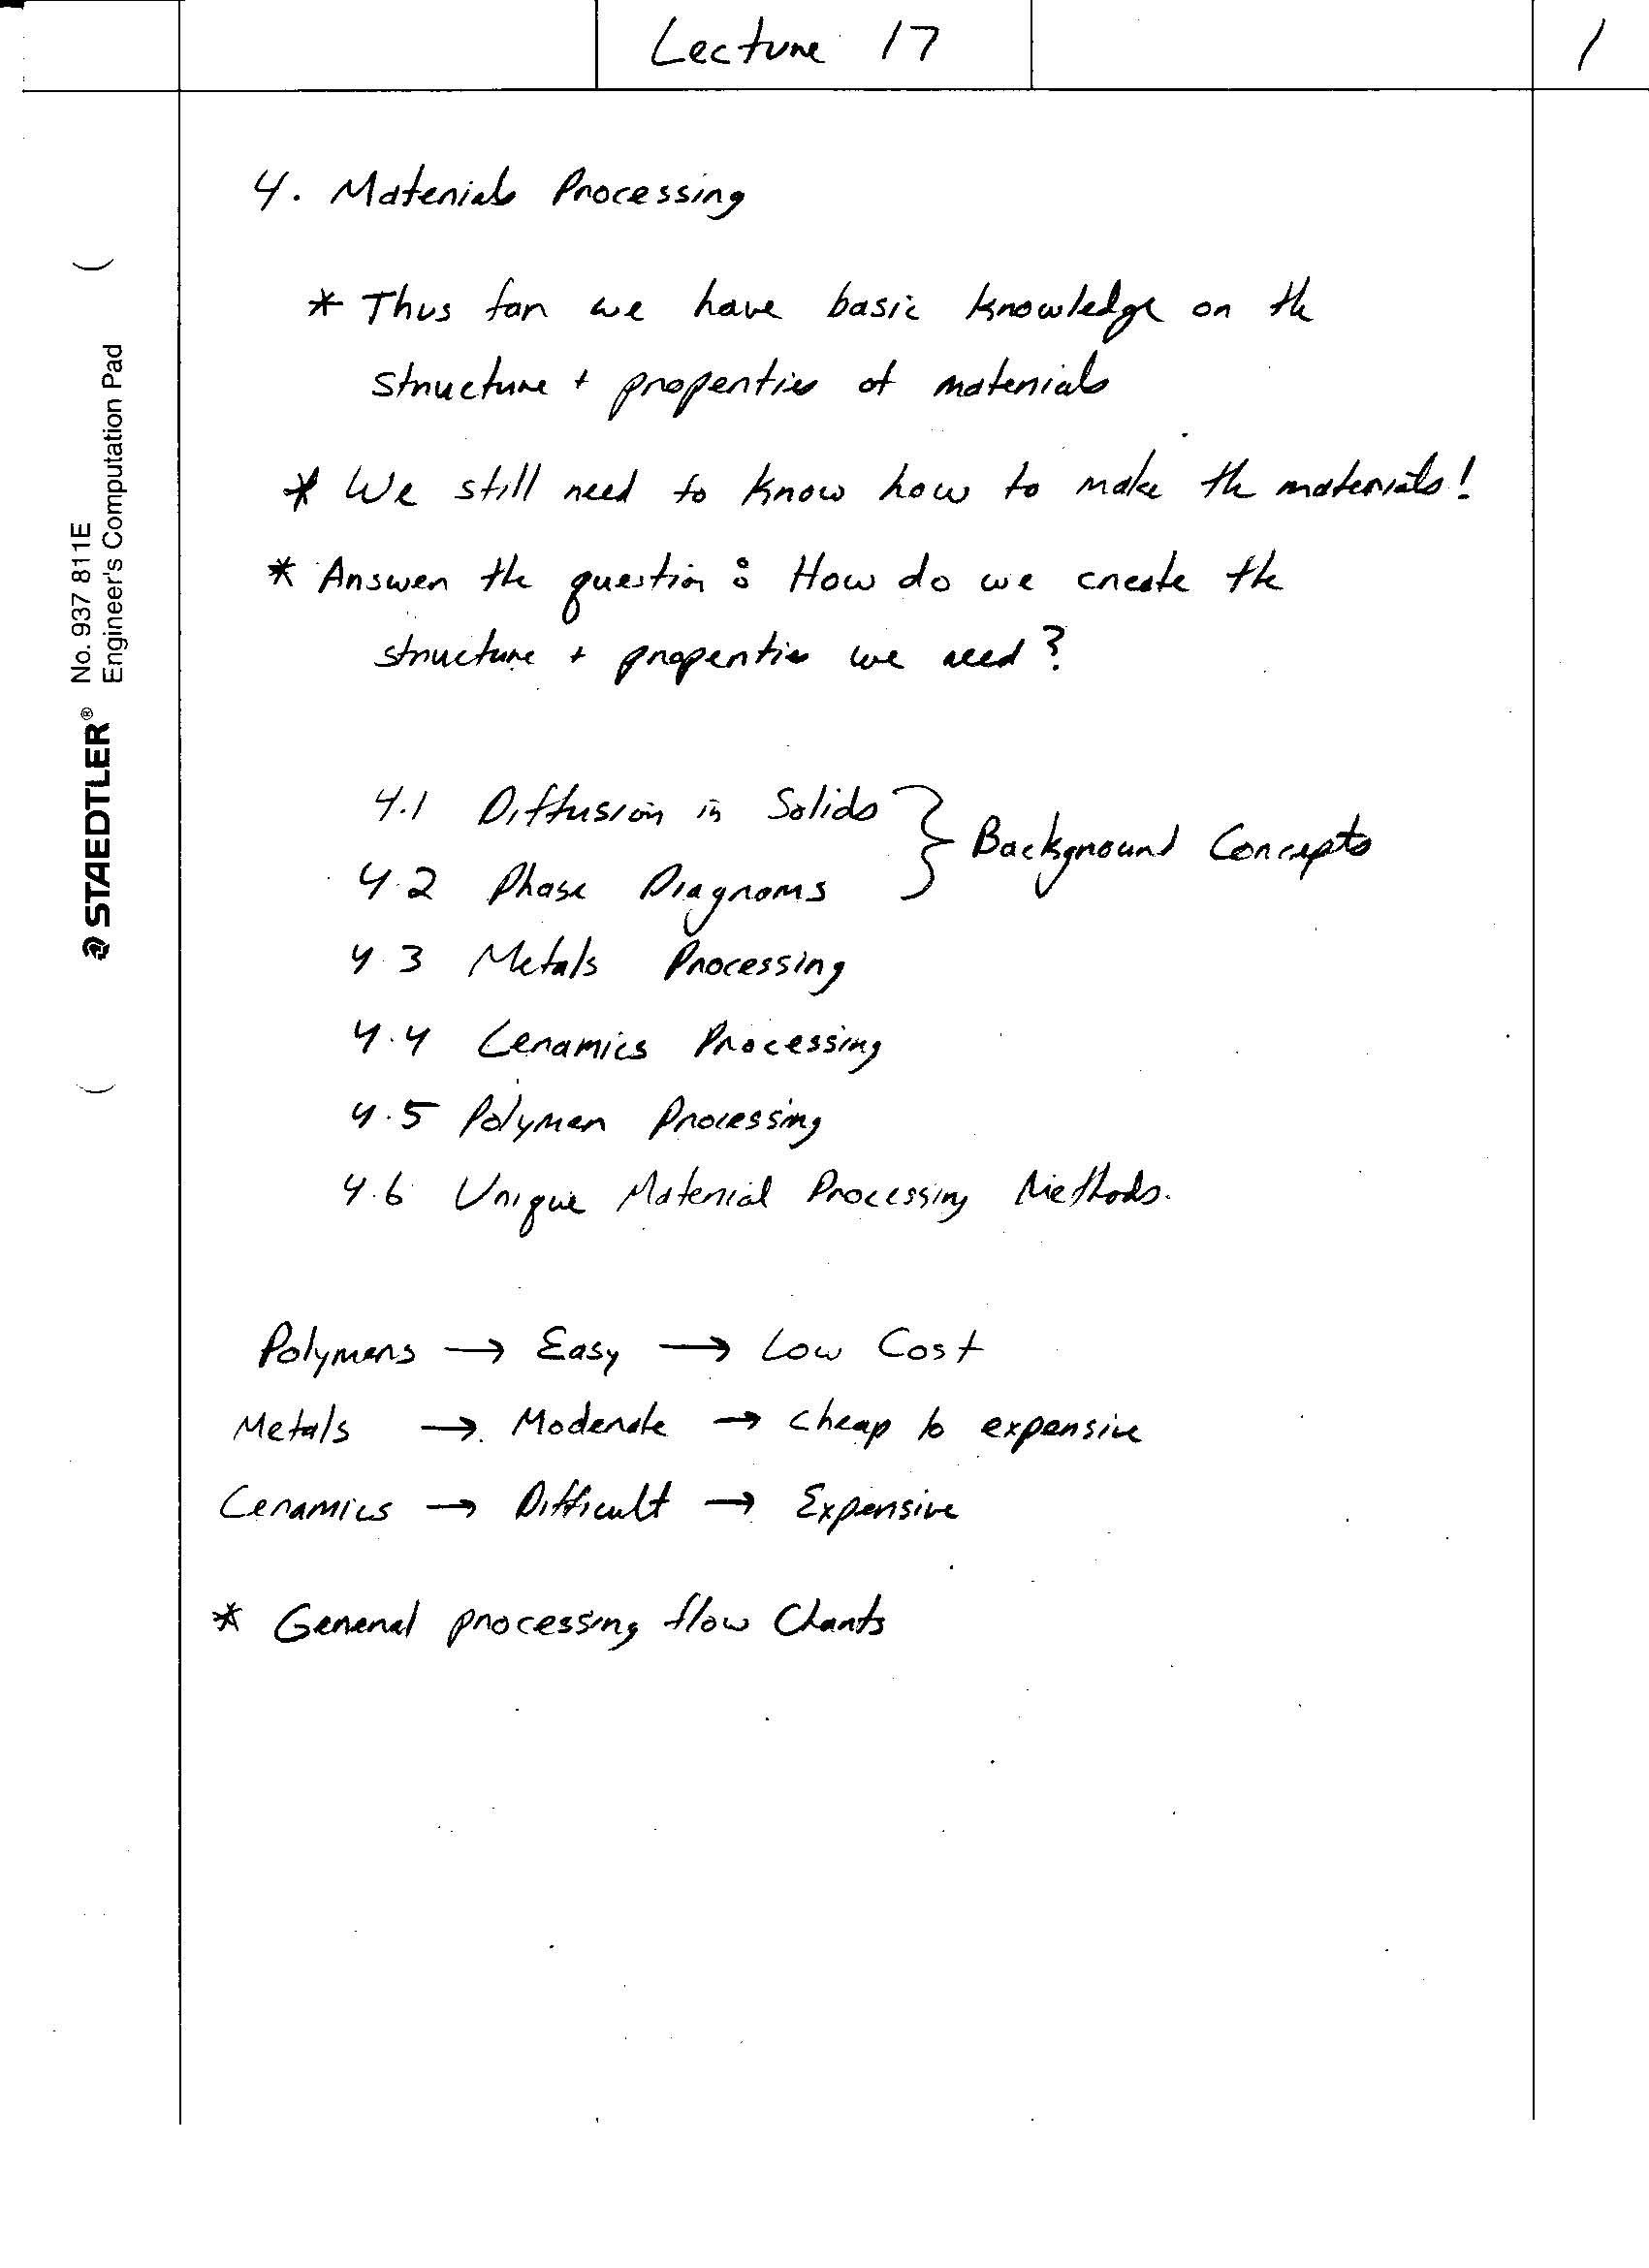 Lecture 17
1
4. Materials Processing
* Thus far we have basic knowledge on the
structure + properties of materials
* We still need to know how to make the materials!
* Answer the question: How do we create the
structure + properties we need?
4.1 Diffusion in Solids
4.2 Phase Diagrams
} Background Concepts
4.3 Metals Processing
4.4 Ceramics Processing
4.5 Polymer Processing
4.6 Unique Material Processing Methods.
Polymers → Easy → Low Cost
Metals → Moderate → cheap to expensive
Ceramics → Difficult → Expensive
* General processing flow Charts
STAEDTLER® No. 937 811E
Engineer's Computation Pad